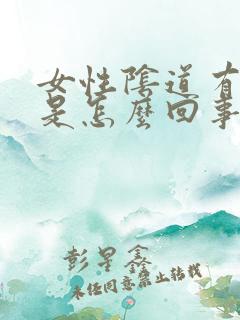 女性陰道有
是怎麼回事
彭星鑫
未经同意禁止转载